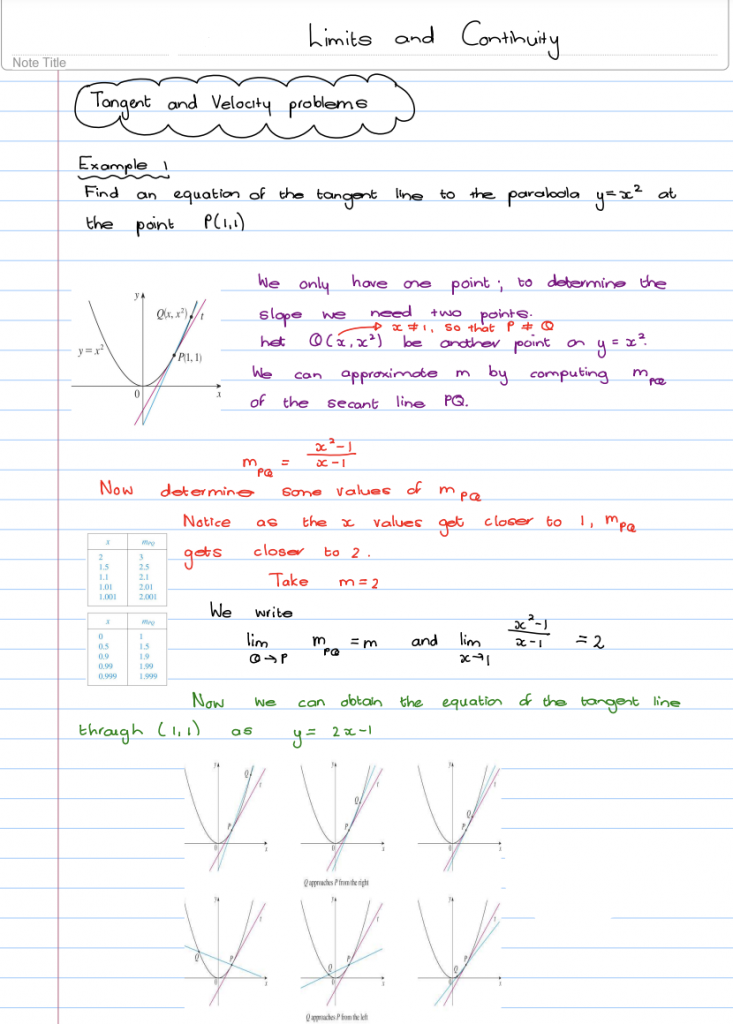 Limits and Continuity
Note Title
Tangent and Velocity problems
Example 1
Find an equation of the tangent line to the parabola y=x² at
the point P(1,1)
We only have one point; to determine the
slope we need two points.
x ≠ 1, so that P ≠ Q
Let Q(x, x²) be another point on y = x².
We can approximate m by computing m_PQ
of the secant line PQ.
y
Q(x, x²)
t
y = x²
P(1, 1)
0
x
m_PQ = (x²-1)/(x-1)
Now determine some values of m_PQ
Notice as the x values get closer to 1, m_PQ
gets closer to 2.
Take m=2
x m_PQ
2 3
1.5 2.5
1.1 2.1
1.01 2.01
1.001 2.001
x m_PQ
0 1
0.5 1.5
0.9 1.9
0.99 1.99
0.999 1.999
We write
lim Q→P m_PQ = m and lim x→1 (x²-1)/(x-1) = 2
Now we can obtain the equation of the tangent line
through (1,1) as y = 2x-1
y
Q
t
P
0
x
y
Q
t
P
0
x
y
Q
t
P
0
x
Q approaches P from the right
y
t
Q
P
0
x
y
t
Q
P
0
x
y
t
Q
P
0
x
Q approaches P from the left